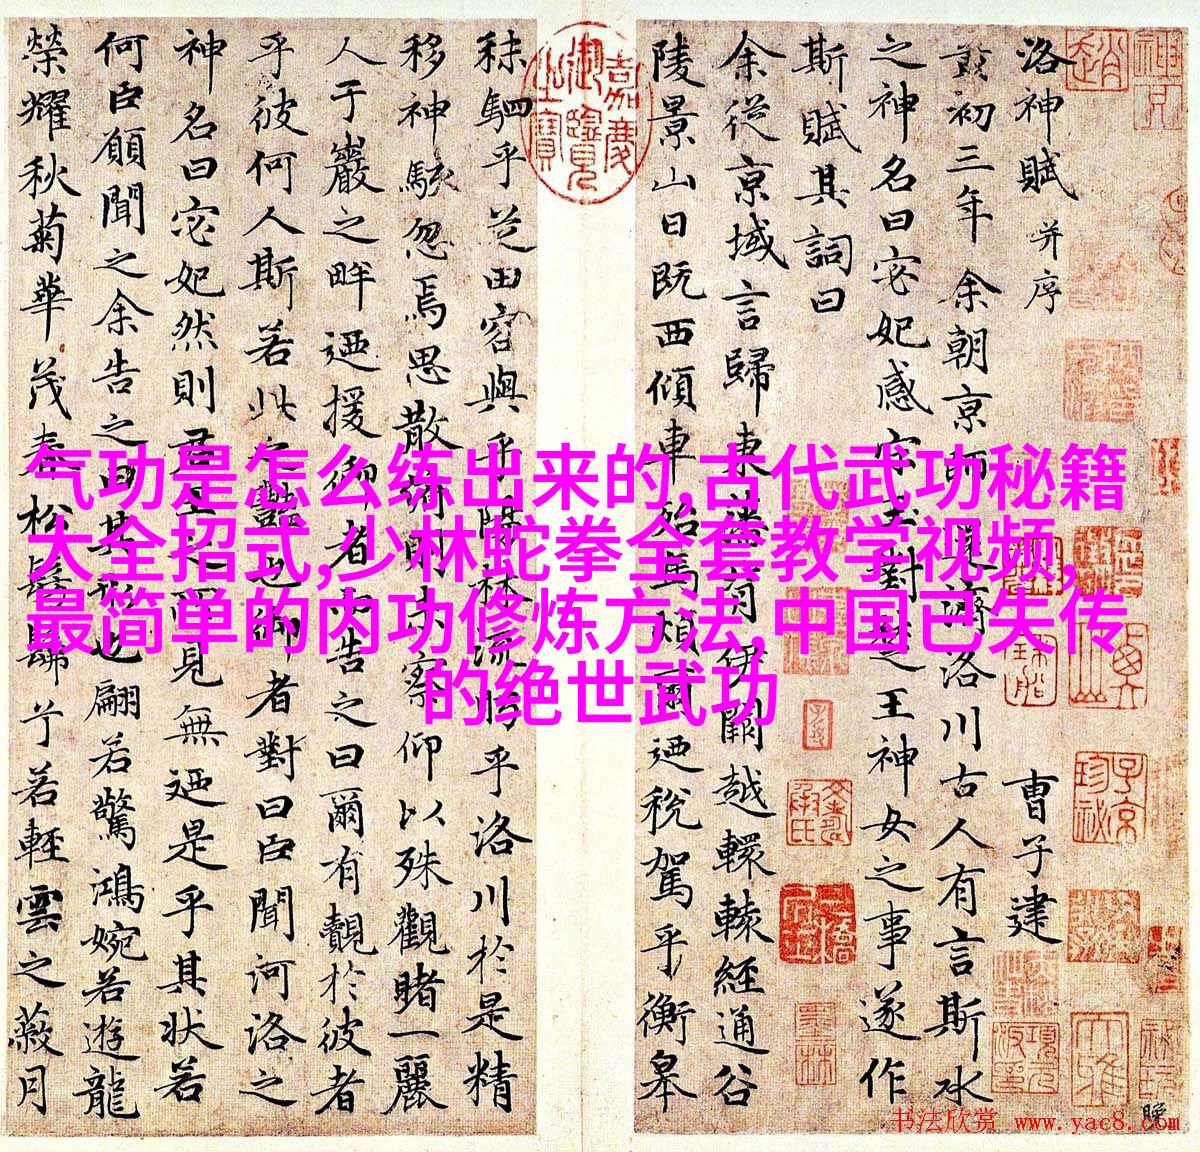 洛神賦 并序 曹子建
黃初三年余朝京師還濟洛川古人有言斯水
之神名曰宓妃感宋玉對楚王神女之事遂作
斯賦其詞曰
余從京域言歸東藩背伊闕越轘轅經通谷
陵景山日既西傾車殆馬煩爾迺稅駕乎蘅皋
嘉慶御覽之寶
秣駟乎芝田容與乎陽林流眄乎洛川於是精
移神駭忽焉思散俯則未察仰以殊觀睹一麗
人于巖之畔迺援御者而告之曰爾有覿於彼者
乎彼何人斯若此之艷也御者對曰臣聞河洛之
神名曰宓妃然則君王之所見無迺是乎其狀若
何臣願聞之余告之曰其形也翩若驚鴻婉若遊龍
榮耀秋菊華茂春松髣髴兮若輕雲之蔽月
气功是怎么练出来的,古代武功秘籍
大全招式,少林蛇拳全套教学视频,
最简单的内功修炼方法,中国已失传
的绝世武功
书法欣赏 www.yac8.com